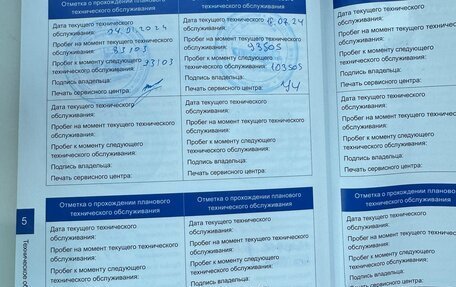 Отметка о прохождении планового
технического обслуживания
Дата текущего технического
обслуживания: 04.01.2024
Пробег на момент текущего технического
обслуживания: 83103
Пробег к моменту следующего
технического обслуживания: 93103
Подпись владельца:
Печать сервисного центра:
Дата текущего технического
обслуживания:
Пробег на момент текущего технического
обслуживания:
Пробег к моменту следующего
технического обслуживания:
Подпись владельца:
Печать сервисного центра:
Отметка о прохождении планового
технического обслуживания
Дата текущего технического
обслуживания:
Пробег на момент текущего технического
обслуживания: 93505
Пробег к моменту следующего
технического обслуживания: 103505
Подпись владельца:
Печать сервисного центра:
Дата текущего технического
обслуживания:
Пробег на момент текущего технического
обслуживания:
Пробег к моменту следующего
технического обслуживания:
Подпись владельца:
Печать сервисного центра:
технического
Дата текущего технического
обслуживания:
Пробег на момент
обслуживания:
Пробег к моменту следующего
технического обслуживания:
Подпись владельца:
Печать сервисного центра:
Дата текущего технического
обслуживания:
Пробег на момент текущего
обслуживания:
Пробег к моменту следующего
технического обслуживания:
Подпись владельца:
Печать сервисного центра:
5
Отметка о прохождении планового
технического обслуживания
Дата текущего технического
обслуживания:
Пробег на момент текущего технического
обслуживания:
Пробег к моменту следующего
технического обслуживания:
Отметка о прохождении планового
технического обслуживания
Дата текущего технического
обслуживания:
Пробег на момент текущего технического
обслуживания:
Пробег к моменту следующего
технического обслуживания:
Подпись владельца:
Отметка о прохождении
технического обслуживания
Дата текущего технического
обслуживания:
Пробег на момент текущего
обслуживания:
Пробег к моменту следующего
технического обслуживания:
Подпись владельца: